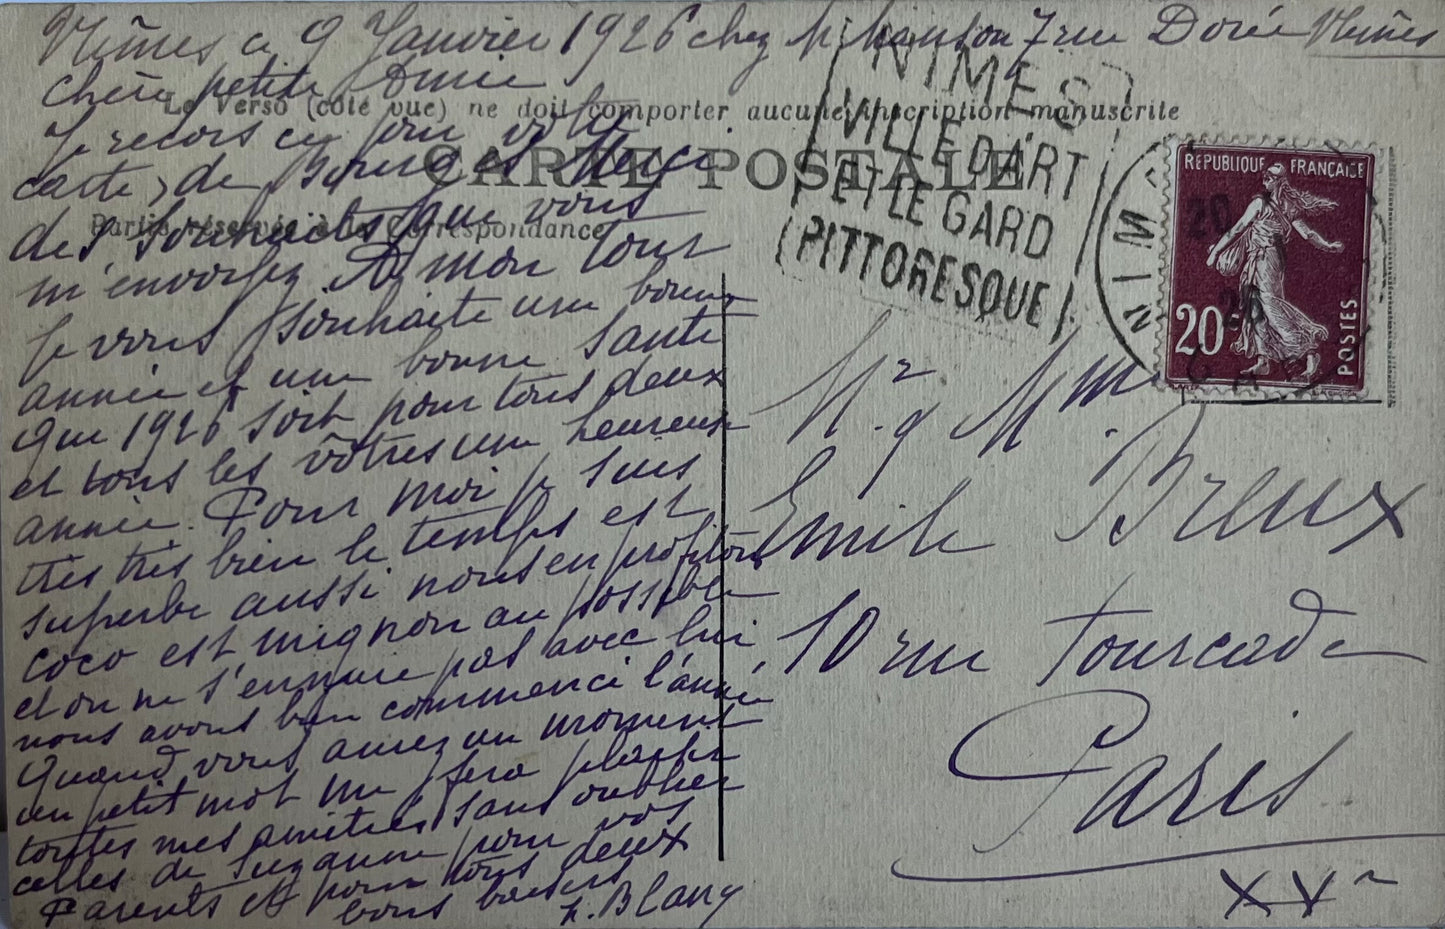 Nîmes ce 9 Janvier 1926 chez Mr 7 rue Dorée Nîmes
Chère petite Amie
Le Verso (côté vue) ne doit comporter aucune inscription manuscrite
CARTE POSTALE
Partie réservée à la Correspondance
Je recois ce jour votre
carte, de Bourges Merci
des souhaits que vous
m'envoyez. A mon tour
je vous souhaite une bonne
année et une bonne santé
que 1926 soit pour tous deux
et tous les vôtres une heureuse
année. Pour moi je suis
très très bien le temps est
superbe aussi nous en profitons
coco est mignon au possible
et on ne s'ennuie pas avec lui
nous avons bien commencé l'année
Quand vous aurez un moment
un petit mot me fera plaisir
toutes mes amitiés sans oublier
celles de Suzanne pour vos
Parents et pour tous deux
bons baisers
Blany
NIMES
VILLE D'ART
ET LE GARD
PITTORESQUE
NIM
20
26
GARD
REPUBLIQUE FRANCAISE
20c
POSTES
Mr & Mme
Emile Breux
10 rue Fourcade
Paris
XVe